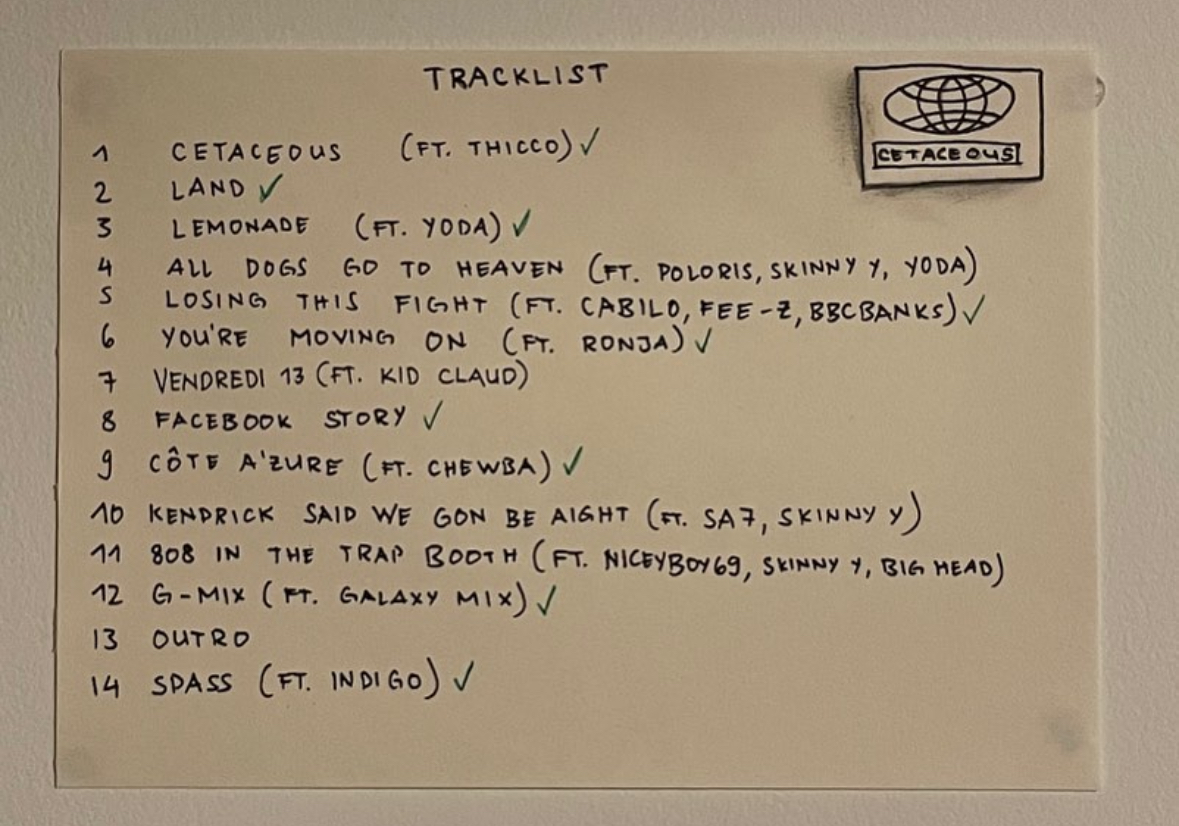 TRACKLIST
CETACEOUS
1 CETACEOUS (FT. THICCO) ✓
2 LAND ✓
3 LEMONADE (FT. YODA) ✓
4 ALL DOGS GO TO HEAVEN (FT. POLORIS, SKINNY Y, YODA)
5 LOSING THIS FIGHT (FT. CABILO, FEE-Z, BBCBANKS) ✓
6 YOU'RE MOVING ON (FT. RONJA) ✓
7 VENDREDI 13 (FT. KID CLAUD)
8 FACEBOOK STORY ✓
9 CÔTE A'ZURE (FT. CHEWBA) ✓
10 KENDRICK SAID WE GON BE AIGHT (FT. SA7, SKINNY Y)
11 808 IN THE TRAP BOOTH (FT. NICEYBOY69, SKINNY Y, BIG HEAD)
12 G-MIX (FT. GALAXY MIX) ✓
13 OUTRO
14 SPASS (FT. INDIGO) ✓